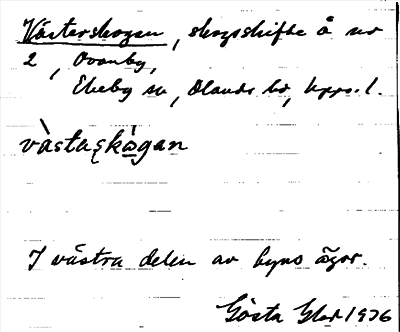 Västerskogen, skogsskifte å nr
2, Ovanby,
Ekeby sn, Olands hd, Upps. l.
vàstaʂkògan
I västra delen av byns ägor.
Gösta 1976